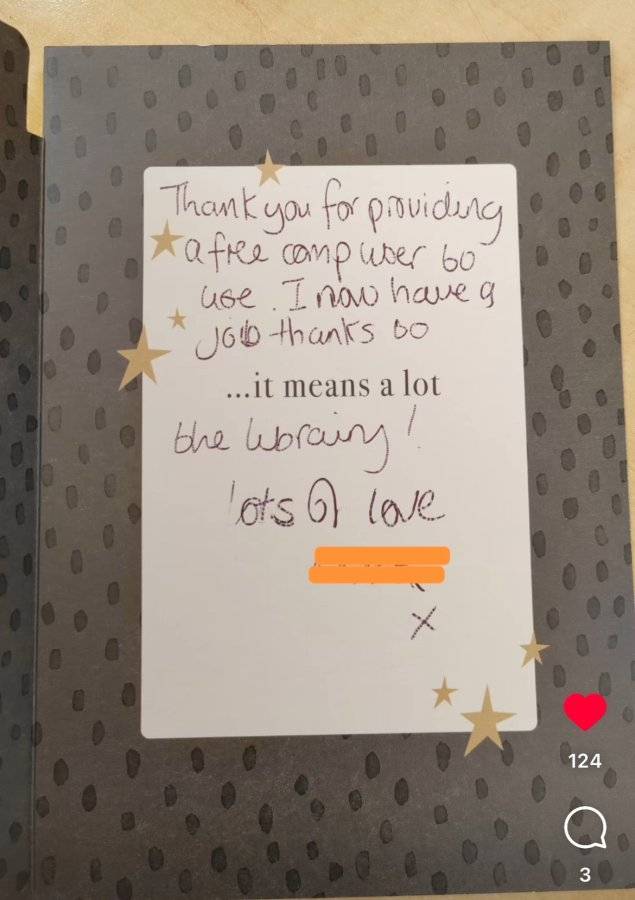 Thank you for providing
a free computer to
use. I now have a
job thanks to
...it means a lot
the library!
lots of love
x
124
3